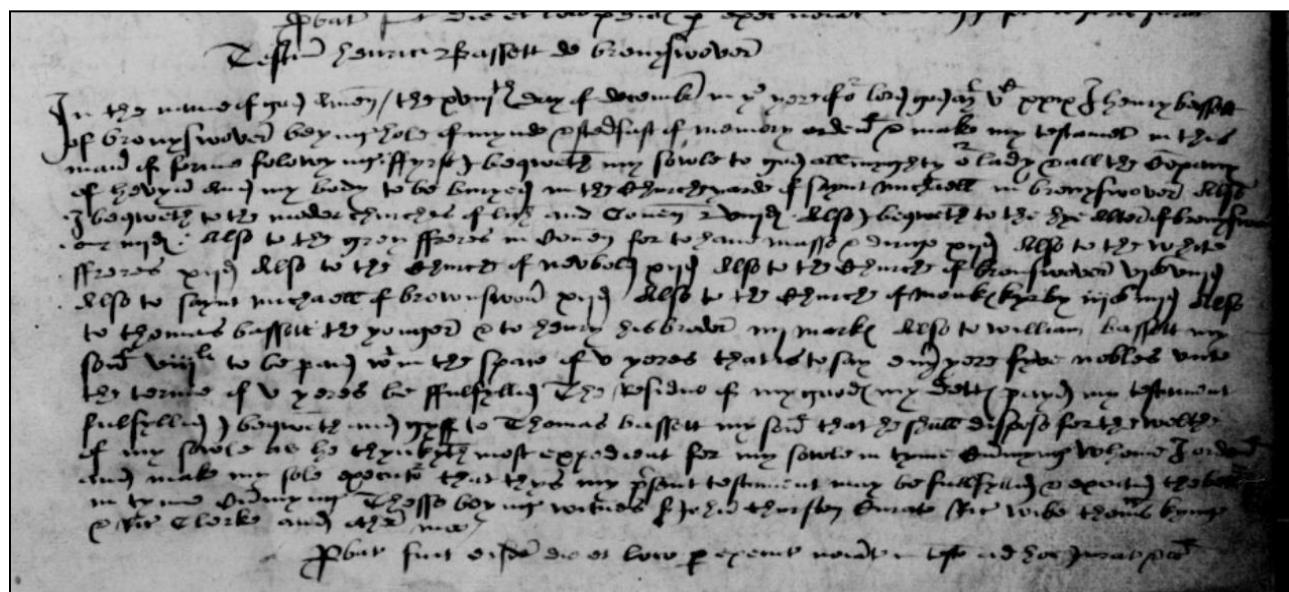 Probat fuit die et loco pdict p exec
Testm henrici Bassett de bromswover
In the name of god Amen / the xviijth day of decembr in ye yere of or lord god M vc xxix I henry bassett
of bronyswover beyng hole of mynde & stedfast of memory orden & make my testament in this
maner & forme folowyng ffyrst I beqweth my sowle to god allmyghty or lady & all the Company
of hevyn And my body to be buryed in the Churcheyarde of saynt michaell in bronyswover Also
I beqweth to the moder churches of lich and Coven viijd Also I beqweth to the hye Alter of bronswover
iiijd Also to the grey ffreres in Coven for to have masse & dirige xijd Also to the white
ffreres xijd Also to the Churche of newbold xijd Also to the Churche of bronswover vis viijd
Also to saynt michaell of brownswover xijd Also to the Churche of monks kyrby iijs iiijd Also
to thomas bassett the yonger & to henry his broder iiij marks Also to william bassett my
son viijl to be payd wtin the space of v yeres that is to say every yere fyve nobles unto
the terme of v yeres be ffulfylled The Residue of my goods my detts payd my testament
fulfylled I beqweth and gyff to Thomas bassett my son that he shall dispose for the welthe
of my sowle as he thynkyth most expedient for my sowle in tyme Comyng whome I orden
and make my sole executor that thys my psent testament may be fulfylled & executed the better
in tyme Comyng Thesse beyng witness Sr John thurston Curate Ric thoms kynge
& Ric Clerke and other moo
Probat fuit eisdem die et loco p execut noiat in test ad hoc Jurat